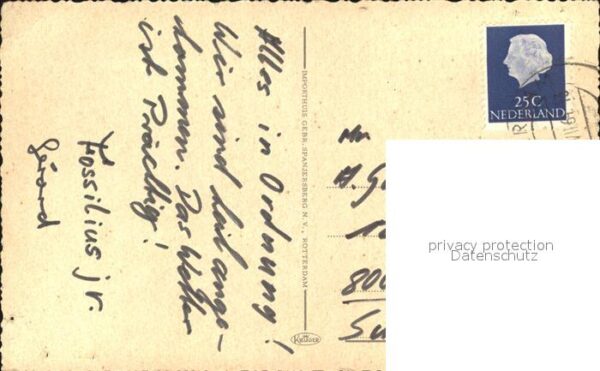 Alles in Ordnung!
Wir sind heil ange-
kommen. Das Wetter
ist Prächtig!
Fossilius jr.
Gérard
IMPORTHUIS GEBR. SPANJERSBERG N.V., ROTTERDAM
KRÜGER
25C
NEDERLAND
H.
800
privacy protection
Datenschutz